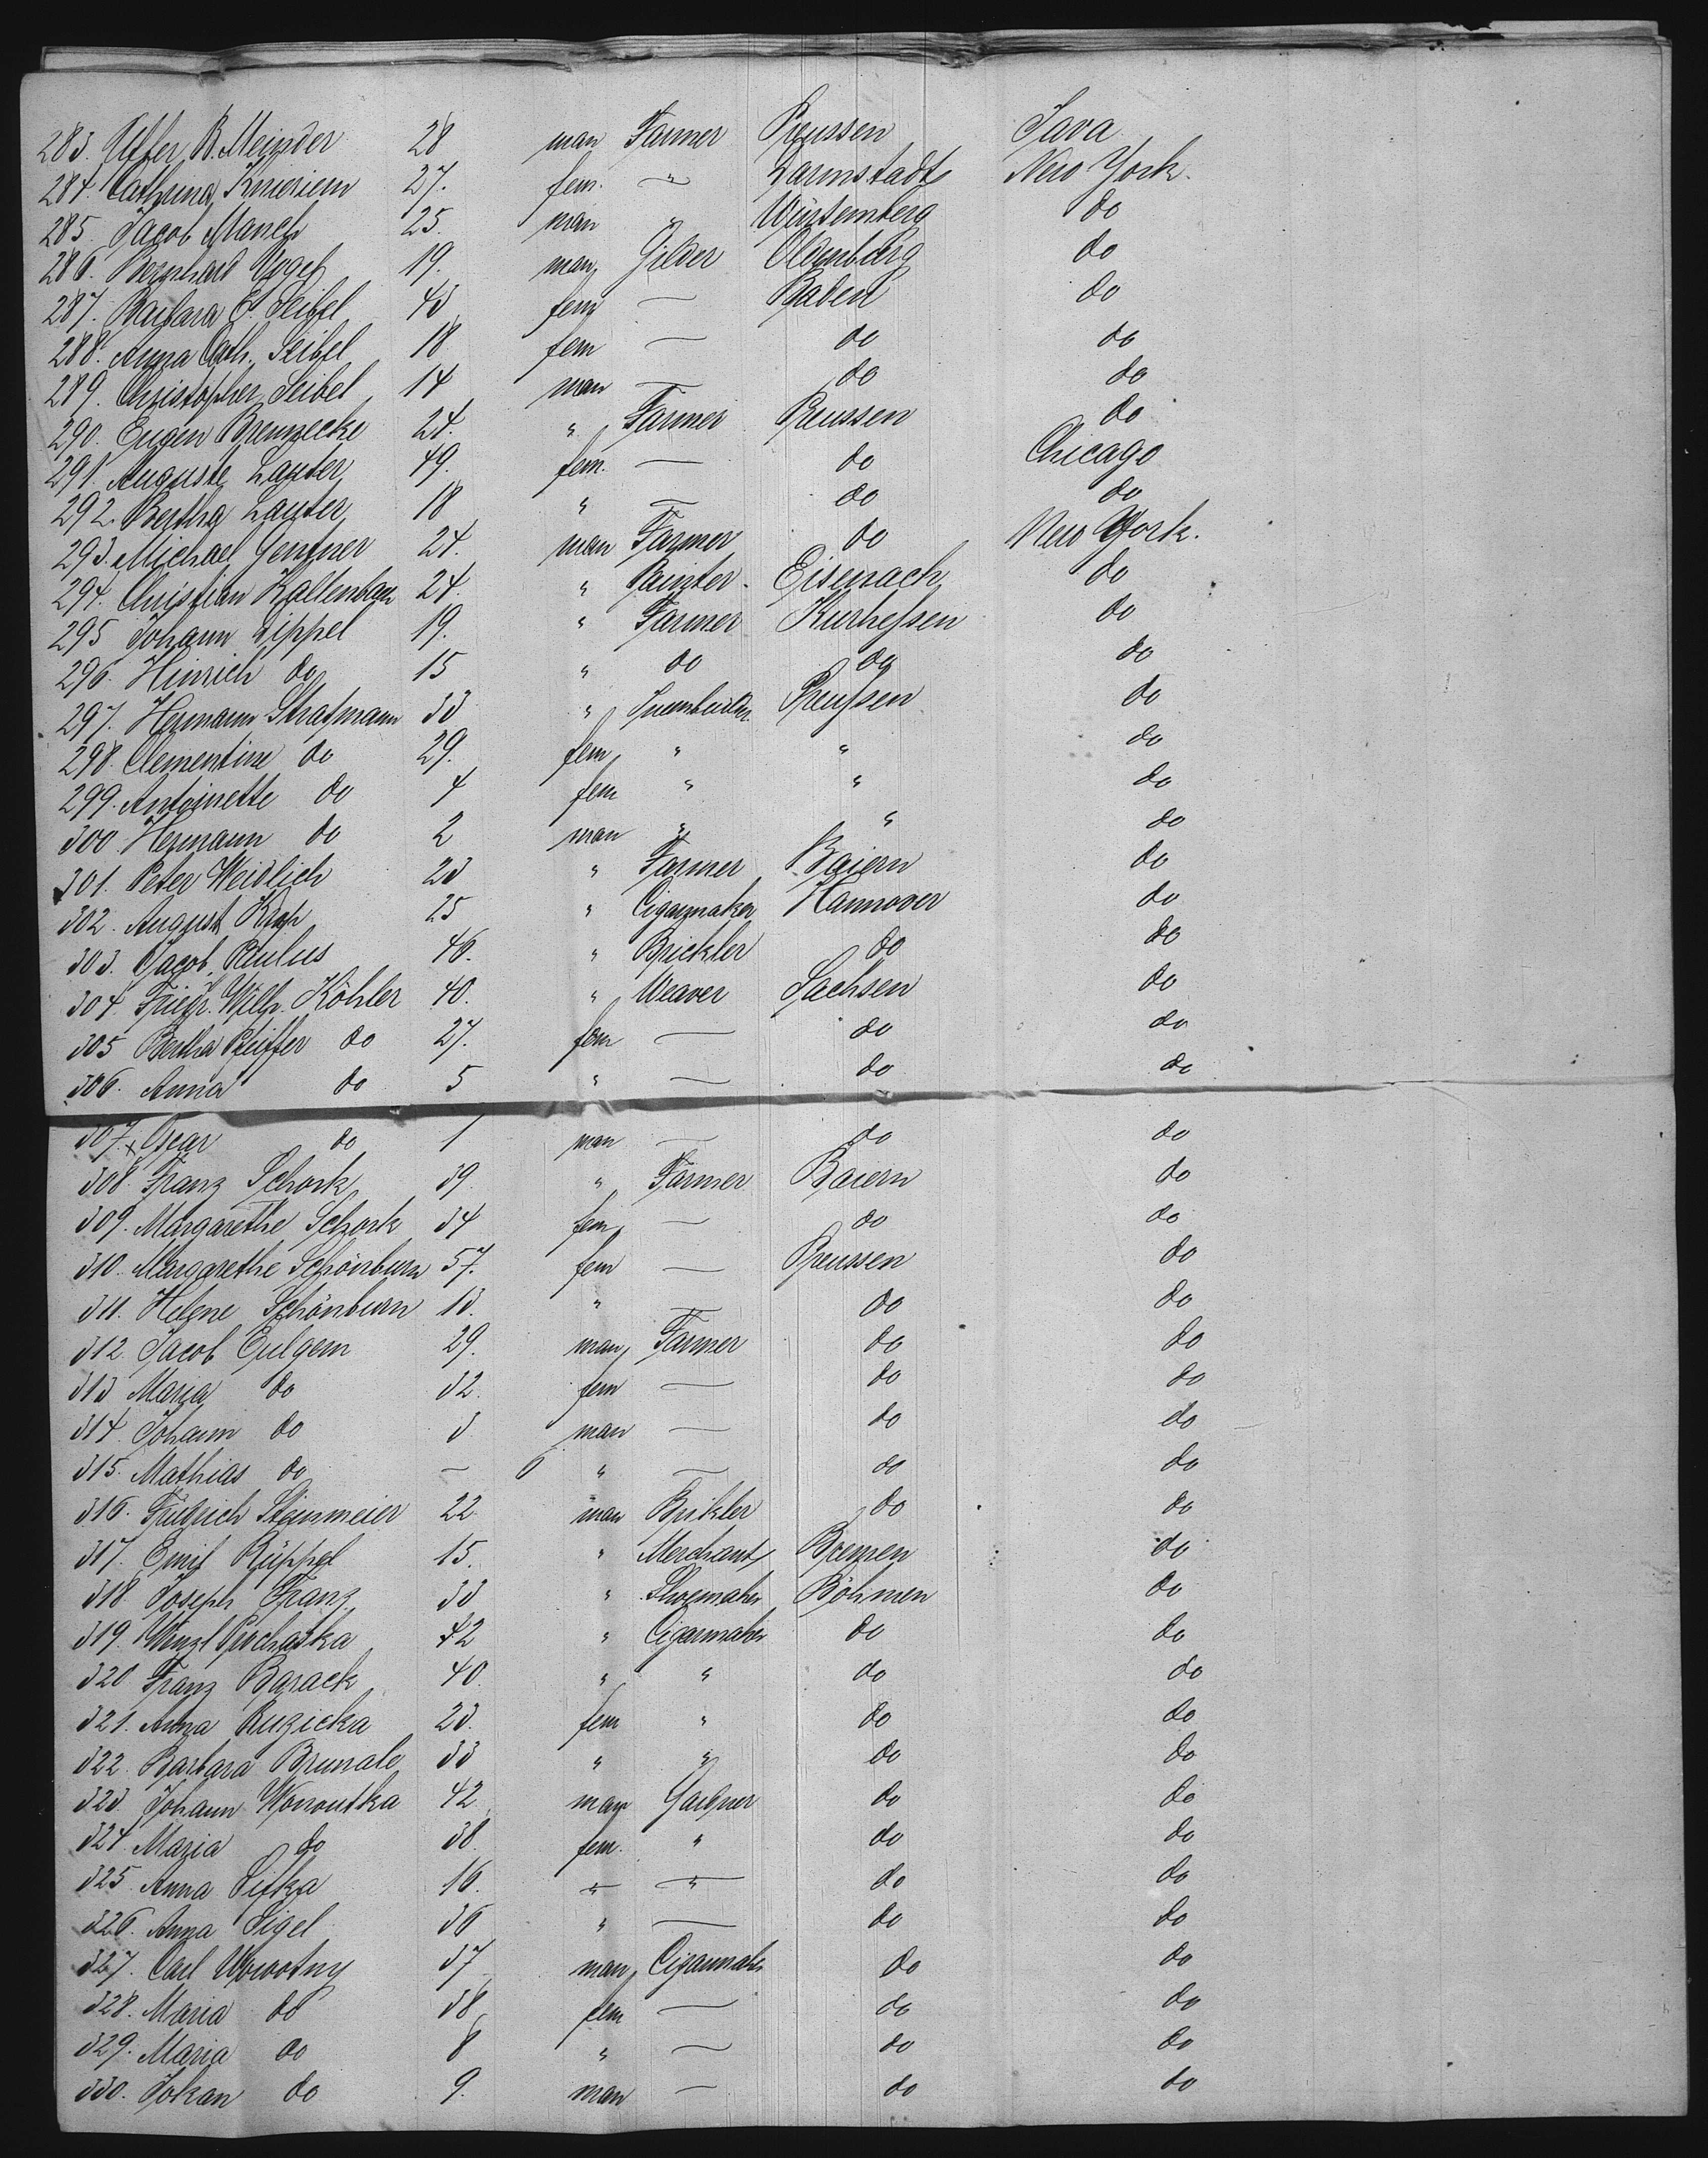 283. Uffer B. Meinder 28 man Farmer Preussen Java
284. Cathrina Knieriem 27. fem. " Darmstadt New York.
285. Jacob Manch 25. man " Würtemberg do
286. Bernhard Vogel 19. man Gilder Oldenburg do
287. Barbara E. Seibel 43 fem — Baden do
288. Anna Cath. Seibel 18 fem — do do
289. Christopher Seibel 14 man — do do
290. Eugen Brennecke 24. " Farmer Preussen do
291. Auguste Lauter 49. fem. — do Chicago
292. Bertha Lauter 18 " — do do
293. Michael Gentner 24. man Farmer do New York.
294. Christian Kallenbach 24. " Painter. Eisenach do
295 Johann Lippel 19. " Farmer Kurhessen do
296. Hinrich do 15 " do do do
297. Hermann Stratmann 33 " Preussen do
298. Clementine do 29. fem " " do
299. Antoinette do 4 fem " " do
300. Hermann do 2 man " " do
301. Peter Weidlich 23 " Farmer Baiern do
302. August 25 " Cigarmaker Hannover do
303. Jacob Paulus 46. " Brickler do do
304. Friedr. Wilh. Köhler 40. " Weaver Sachsen do
305 Bertha Pfeiffer do 27. fem — do do
306. Anna do 5 " — do do
307. x Oscar do 1 man — do do
308. Franz Schork 39 " Farmer Baiern do
309. Margarethe Schork 34 fem — do do
310. Margarethe Schönburn 57. fem — Preussen do
311. Helene Schönburn 13. " — do do
312. Jacob Eulgem 29. man Farmer do do
313 Maria do 32. fem — do do
314. Johann do 3 man — do do
315. Mathias do — 6 " — do do
316. Friedrich Steinmeier 22 man Brikler do do
317. Emil Rüppel 15. " Merchant Bremen do
318. Joseph Franz 33 " Shoemaker Böhmen do
319. Wenzl Prochaska 42 " Cigarmaker do do
320 Franz Barack 40. " " do do
321. Anna Ruzicka 23. fem " do do
322. Barbara 33 " " do do
323. Johann Wonoutka 42 man Gardner do do
324. Maria do 38. fem. " do do
325 Anna Sifka 16. " " do do
326. Anna Sigel 36 " — do do
327. Carl Nowotny 37 man Cigarmaker do do
328. Maria do 38 fem — do do
329. Maria do 8 " — do do
330. Johan do 9. man — do do